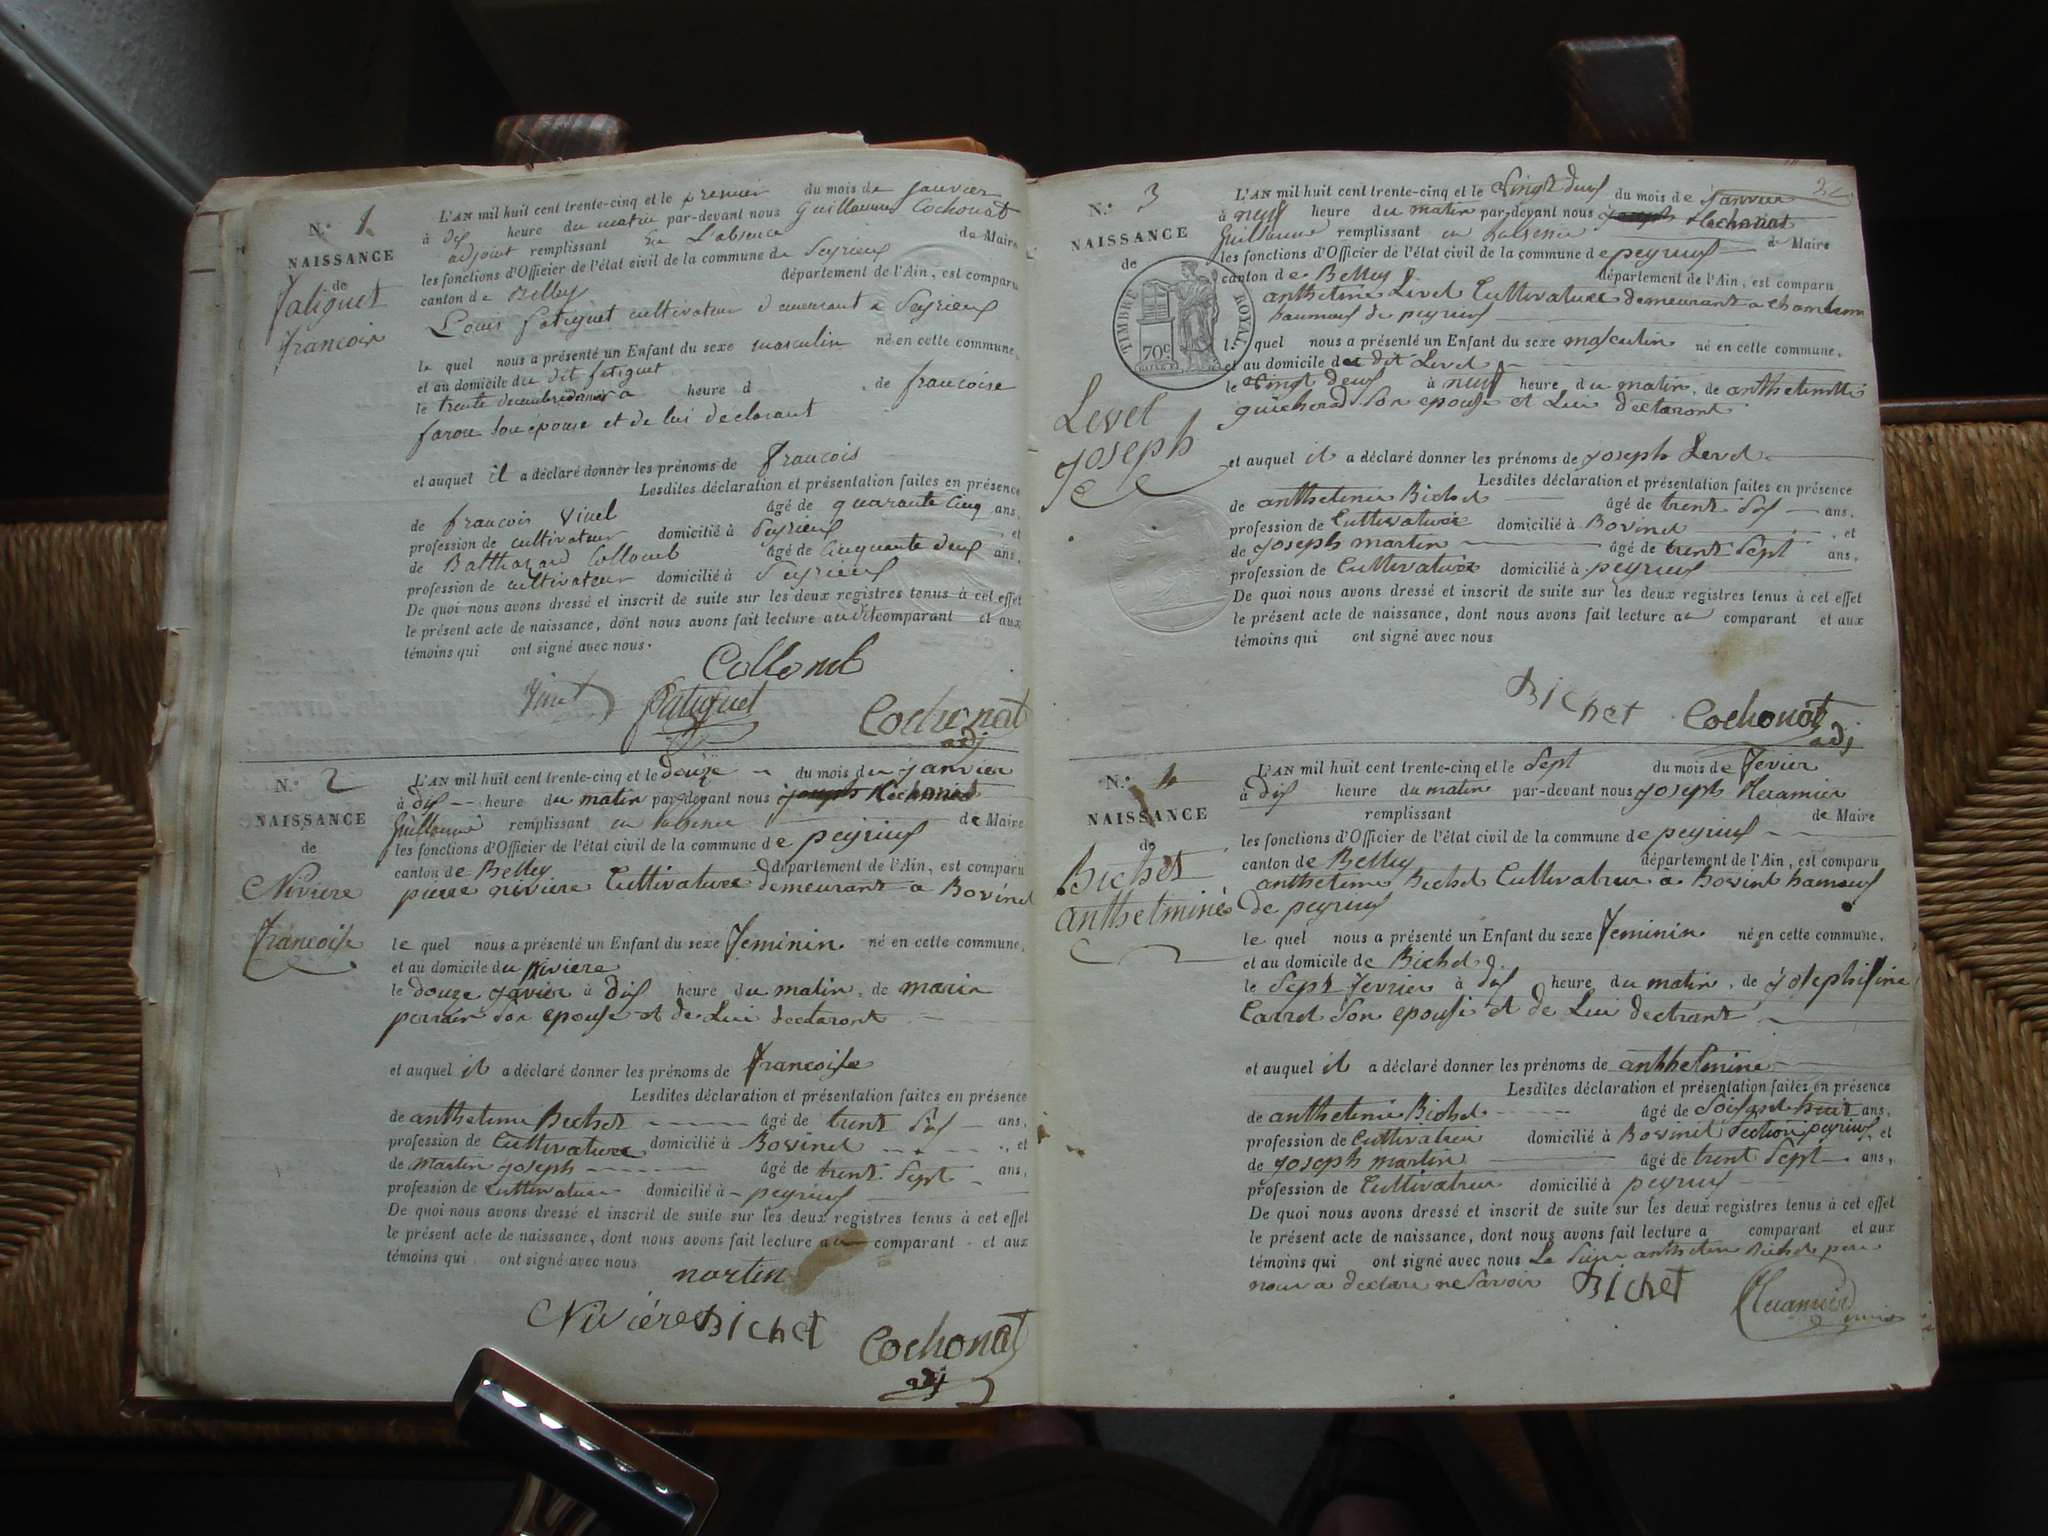 N.º 1
NAISSANCE
de
fatiguet
françois
L'AN mil huit cent trente-cinq et le premier du mois de janvier
à dix heure du matin par-devant nous Guillaume Cochonat
adjoint remplissant En L'absence de Maire
les fonctions d'Officier de l'état civil de la commune de Peyrieux
canton de Belley département de l'Ain, est comparu
Louis fatiguet cultivateur demeurant a Peyrieux
le quel nous a présenté un Enfant du sexe masculin né en cette commune,
et au domicile du dit fatiguet
le trente decembre dernier à heure d , de francoise
farou son épouse et de lui declarant
et auquel il a déclaré donner les prénoms de françois
Lesdites déclaration et présentation faites en présence
de françois Vinet âgé de quarante cinq ans,
profession de cultivateur domicilié à Peyrieux et
de Balthazard Collomb âgé de cinquante deux ans,
profession de cultivateur domicilié à Peyrieux
De quoi nous avons dressé et inscrit de suite sur les deux registres tenus à cet effet
le présent acte de naissance, dont nous avons fait lecture au dit comparant et aux
témoins qui ont signé avec nous.
Collomb
Vinet fatiguet Cochonat
adj
N.º 2
NAISSANCE
de
Niviere
francoise
L'AN mil huit cent trente-cinq et le douze du mois du janvier
à dix heure du matin par-devant nous Cochonat
Guillaume remplissant en labsence de Maire
les fonctions d'Officier de l'état civil de la commune de peyrieux
canton de Belley département de l'Ain, est comparu
pierre niviere Cultivateur demeurant a Bovinel
le quel nous a présenté un Enfant du sexe feminin né en cette commune,
et au domicile du Niviere
le douze janvier à dix heure du matin, de marie
perrain son epouse et de Lui declaront
et auquel il a déclaré donner les prénoms de francoise
Lesdites déclaration et présentation faites en présence
de antheleme Bichet âgé de trent six ans,
profession de Cultivateur domicilié à Bovinel , et
de Martin joseph âgé de trent sept ans,
profession de Cultivateur domicilié à peyrieux
De quoi nous avons dressé et inscrit de suite sur les deux registres tenus à cet effet
le présent acte de naissance, dont nous avons fait lecture au comparant et aux
témoins qui ont signé avec nous
martin
Niviére Bichet Cochonat
adj
N.º 3
NAISSANCE
de
TIMBRE ROYAL
70c
Level
joseph
L'AN mil huit cent trente-cinq et le vingt deux du mois de janvier
à neuf heure du matin par-devant nous Cochonat
Guillaume remplissant en labsence de Maire
les fonctions d'Officier de l'état civil de la commune de peyrieux
canton de Belley département de l'Ain, est comparu
antheleme Level Cultivateur demeurant a
hameau de peyrieux
le quel nous a présenté un Enfant du sexe masculin né en cette commune,
et au domicile du dit Level
le vingt deux à neuf heure du matin, de
guichard son epouse et Lui declaront
et auquel il a déclaré donner les prénoms de joseph Level
Lesdites déclaration et présentation faites en présence
de antheleme Bichet âgé de trent six ans,
profession de Cultivateur domicilié à Bovinel , et
de joseph martin âgé de trent sept ans,
profession de Cultivateur domicilié à peyrieux
De quoi nous avons dressé et inscrit de suite sur les deux registres tenus à cet effet
le présent acte de naissance, dont nous avons fait lecture au comparant et aux
témoins qui ont signé avec nous
Bichet Cochonat
adj
N.º 4
NAISSANCE
de
Bichet
anthelmine
L'AN mil huit cent trente-cinq et le sept du mois de fevier
à dix heure du matin par-devant nous joseph
remplissant de Maire
les fonctions d'Officier de l'état civil de la commune de peyrieux
canton de Belley département de l'Ain, est comparu
antheleme Bichet Cultivateur a Bovinel hameau
de peyrieux
le quel nous a présenté un Enfant du sexe feminin né en cette commune,
et au domicile de Bichet
le sept fevrier à dix heure du matin, de josephine
Carret son epouse et de Lui
et auquel il a déclaré donner les prénoms de anthelmine
Lesdites déclaration et présentation faites en présence
de antheleme Bichet âgé de soisante huit ans,
profession de Cultivateur domicilié à Bovinel section peyrieux, et
de joseph martin âgé de trent sept ans,
profession de Cultivateur domicilié à peyrieux
De quoi nous avons dressé et inscrit de suite sur les deux registres tenus à cet effet
le présent acte de naissance, dont nous avons fait lecture a comparant et aux
témoins qui ont signé avec nous Le Bichet pere
nous a declare ne savoir Bichet